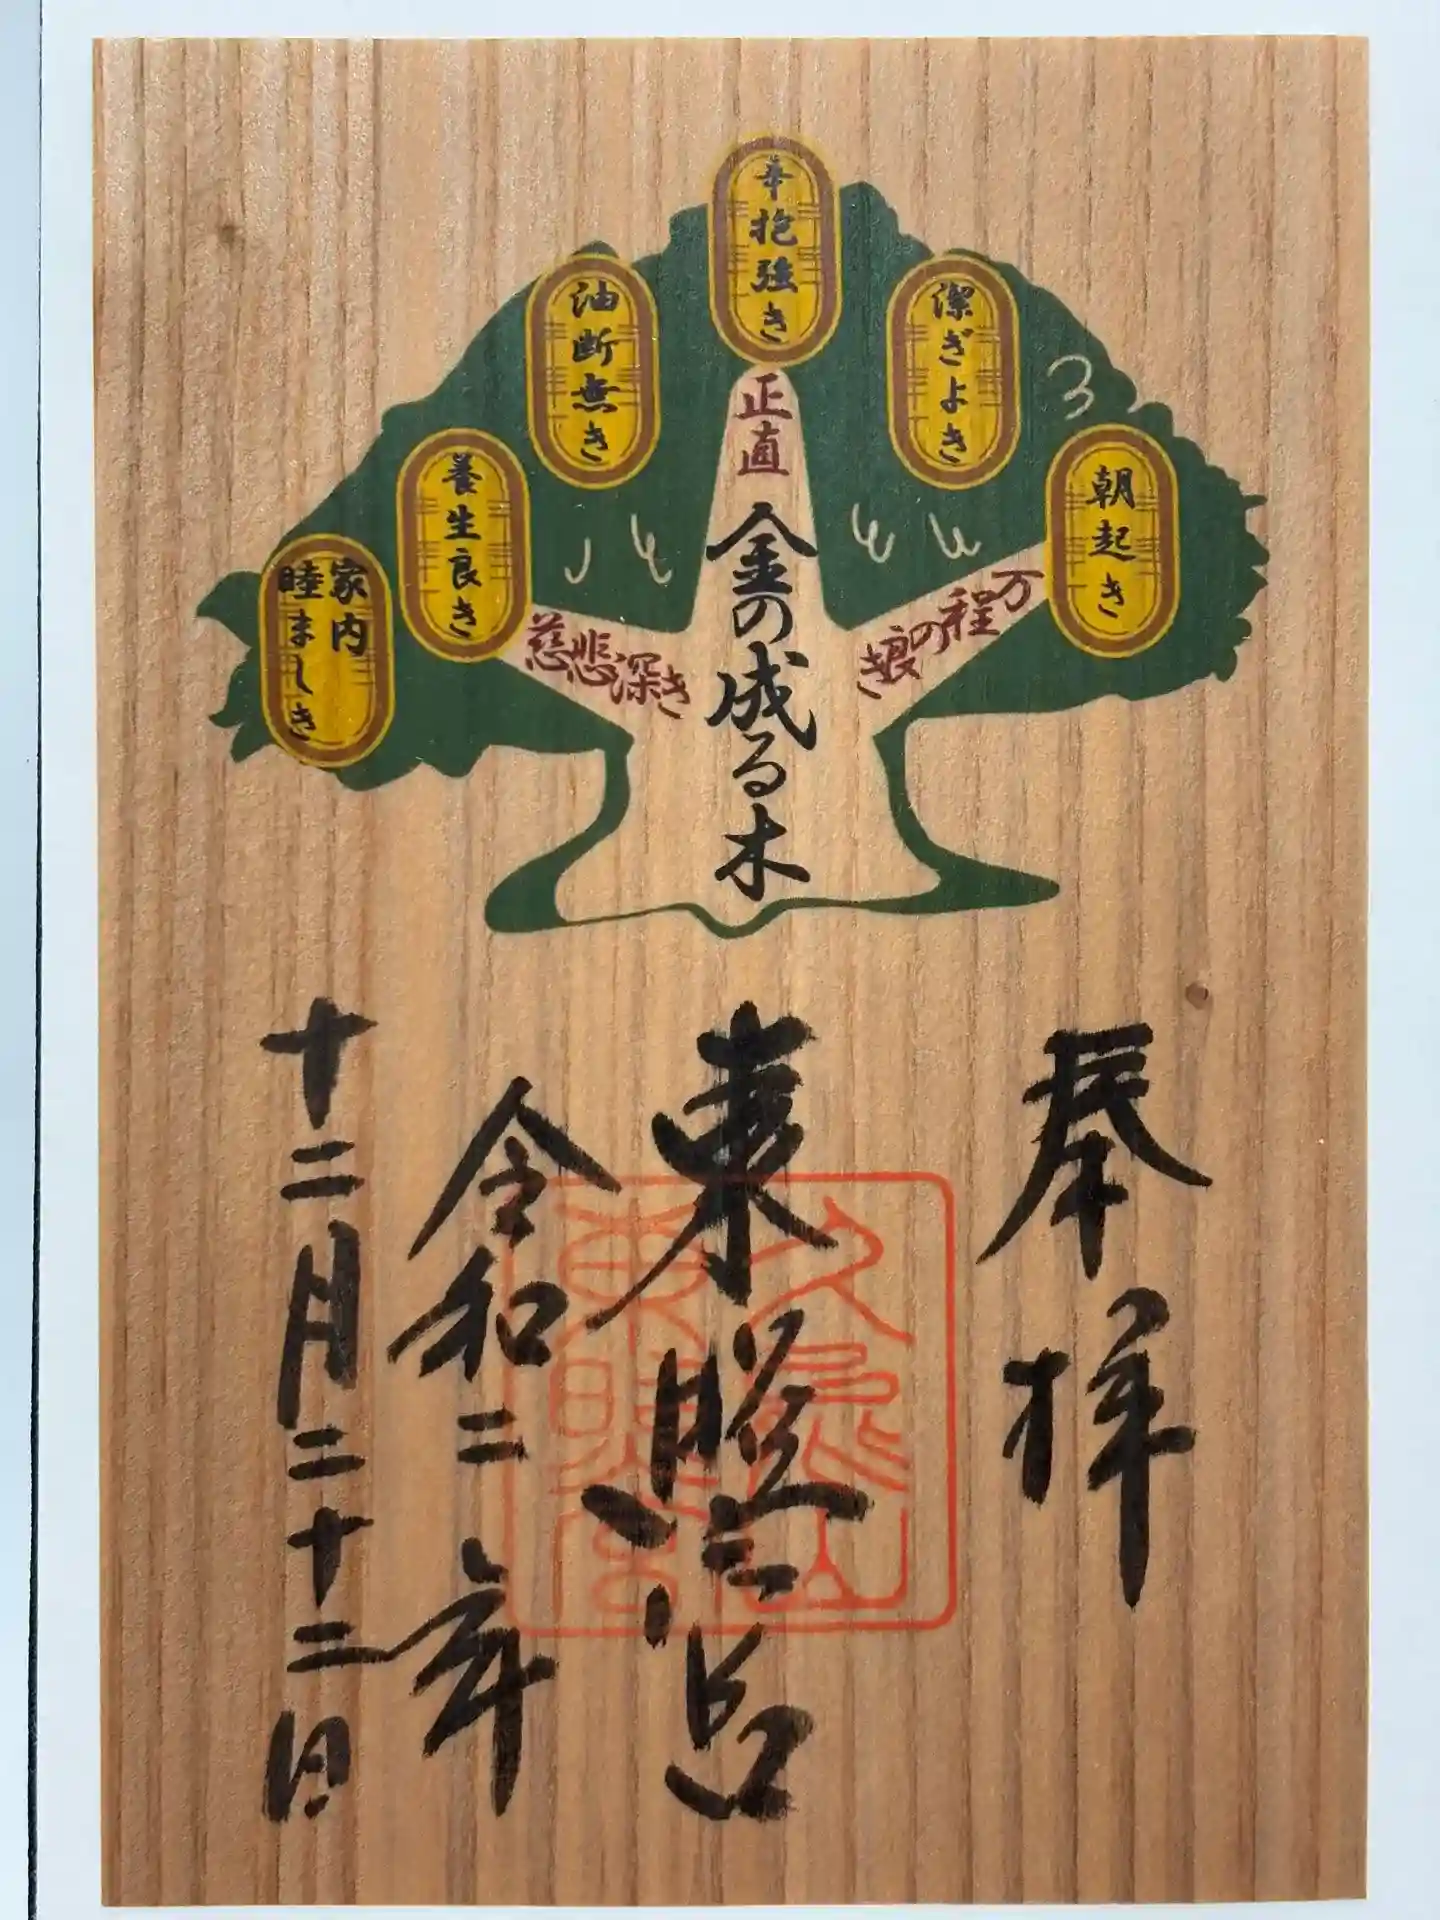 朝起き
潔ぎよき
辛抱強き
油断無き
養生良き
家内
睦ましき
正直
万程の良き
慈悲深き
金の成る木
奉拝
東照宮
令和二年
十二月二十二日